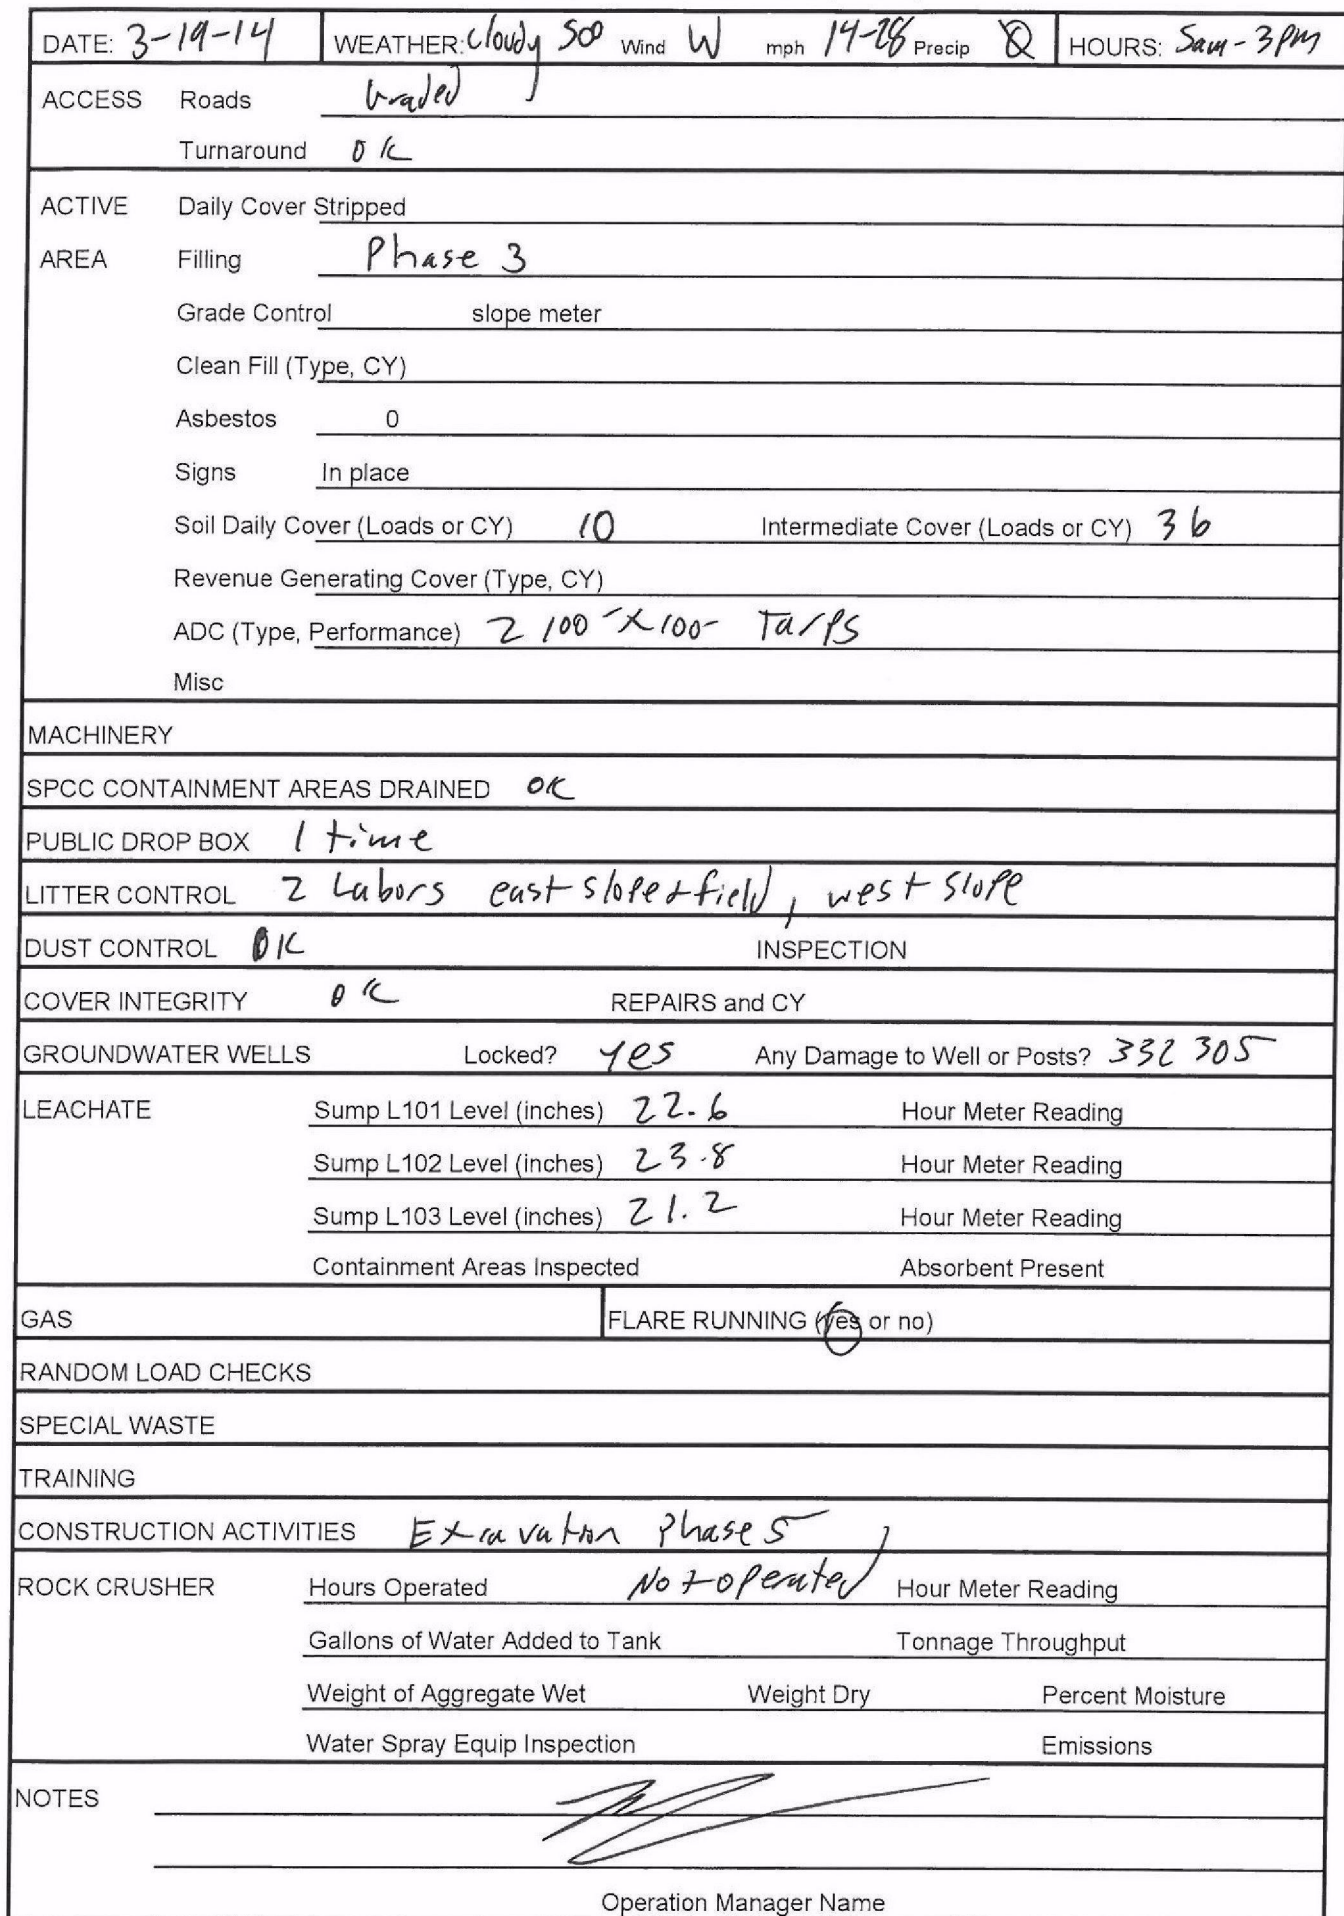 DATE: 3-19-14 WEATHER: Cloudy 50° Wind W mph 14-28 Precip Ø HOURS: 5am - 3pm
ACCESS Roads Graded
Turnaround OK
ACTIVE Daily Cover Stripped
AREA Filling Phase 3
Grade Control slope meter
Clean Fill (Type, CY)
Asbestos 0
Signs In place
Soil Daily Cover (Loads or CY) 10 Intermediate Cover (Loads or CY) 36
Revenue Generating Cover (Type, CY)
ADC (Type, Performance) 2 100' x 100' Tarps
Misc
MACHINERY
SPCC CONTAINMENT AREAS DRAINED OK
PUBLIC DROP BOX 1 time
LITTER CONTROL 2 Labors east slope + field, west slope
DUST CONTROL OK INSPECTION
COVER INTEGRITY OK REPAIRS and CY
GROUNDWATER WELLS Locked? yes Any Damage to Well or Posts? 332 305
LEACHATE Sump L101 Level (inches) 22.6 Hour Meter Reading
Sump L102 Level (inches) 23.8 Hour Meter Reading
Sump L103 Level (inches) 21.2 Hour Meter Reading
Containment Areas Inspected Absorbent Present
GAS FLARE RUNNING (yes or no)
RANDOM LOAD CHECKS
SPECIAL WASTE
TRAINING
CONSTRUCTION ACTIVITIES Excavation Phase 5
ROCK CRUSHER Hours Operated Not operated Hour Meter Reading
Gallons of Water Added to Tank Tonnage Throughput
Weight of Aggregate Wet Weight Dry Percent Moisture
Water Spray Equip Inspection Emissions
NOTES
Operation Manager Name